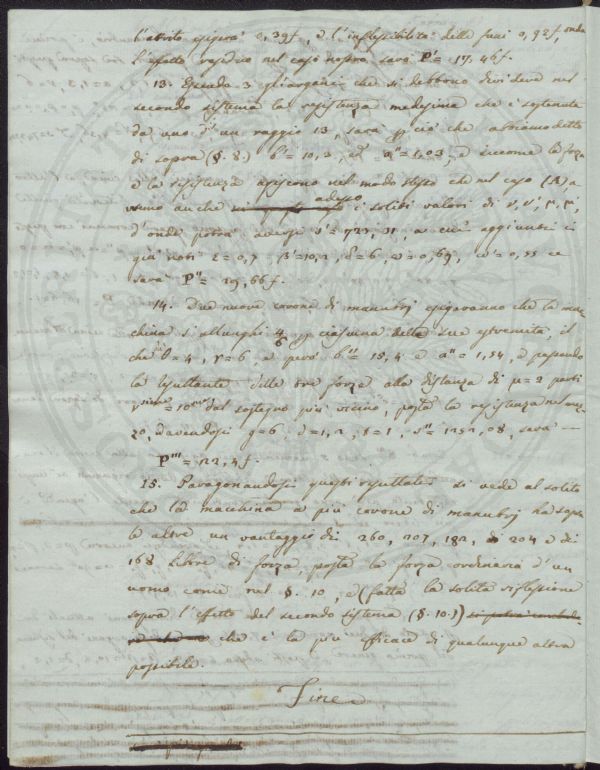 l'attrito esigerà 2,39f, e l'inflessibilità delle funi 0,92f, onde
l'effetto residuo nel caso nostro sarà P' = 17,46f.
13. Essendo 3 gli argani che si debbono dividere nel
secondo sistema la resistenza medesima che è sostenuta
da uno d'un raggio 13, sarà per ciò che abbiamo detto
di sopra (§. 8.) b'' = 10,3, ed a'' = 1,03, e siccome la forza
e la resistenza agiscono nel modo stesso che nel caso (A) a
vremo anche adesso i soliti valori di
d'onde potrà aversi = 723,31, a cui aggiunti i
già noti ε = 0,7 β = 10,2, δ = 6, ω = 0,69, ω' = 0,55 ce
sarà P'' = 29,66f.
14. Due nuove corone di manubrj esigeranno che la mac-
china s'allunghi per ciascuna delle sue estremità, il
che b = 4, r = 6 e però b'' = 15,4 e a'' = 1,54, e passando
la resultante delle tre forze alla distanza di μ = 2 parti
dal sostegno più vicino, posta la resistenza nel mez-
zo, ed avendosi g = 6, = 1,2, t = 1, s'' = 1252,08, sarà —
P''' = 22,4f.
15. Paragonandosi questi resultati si vede al solito
che la macchina a più corone di manubrj ha sopra
le altre un vantaggio di 260, 207, 182, 204 e di
168 Libre di forza, posta la forza ordinaria d'un
uomo come nel §. 10, e (fatta la solita riflessione
sopra l'effetto del secondo sistema (§. 10.))
che è la più efficace di qualunque altra
possibile.
Fine